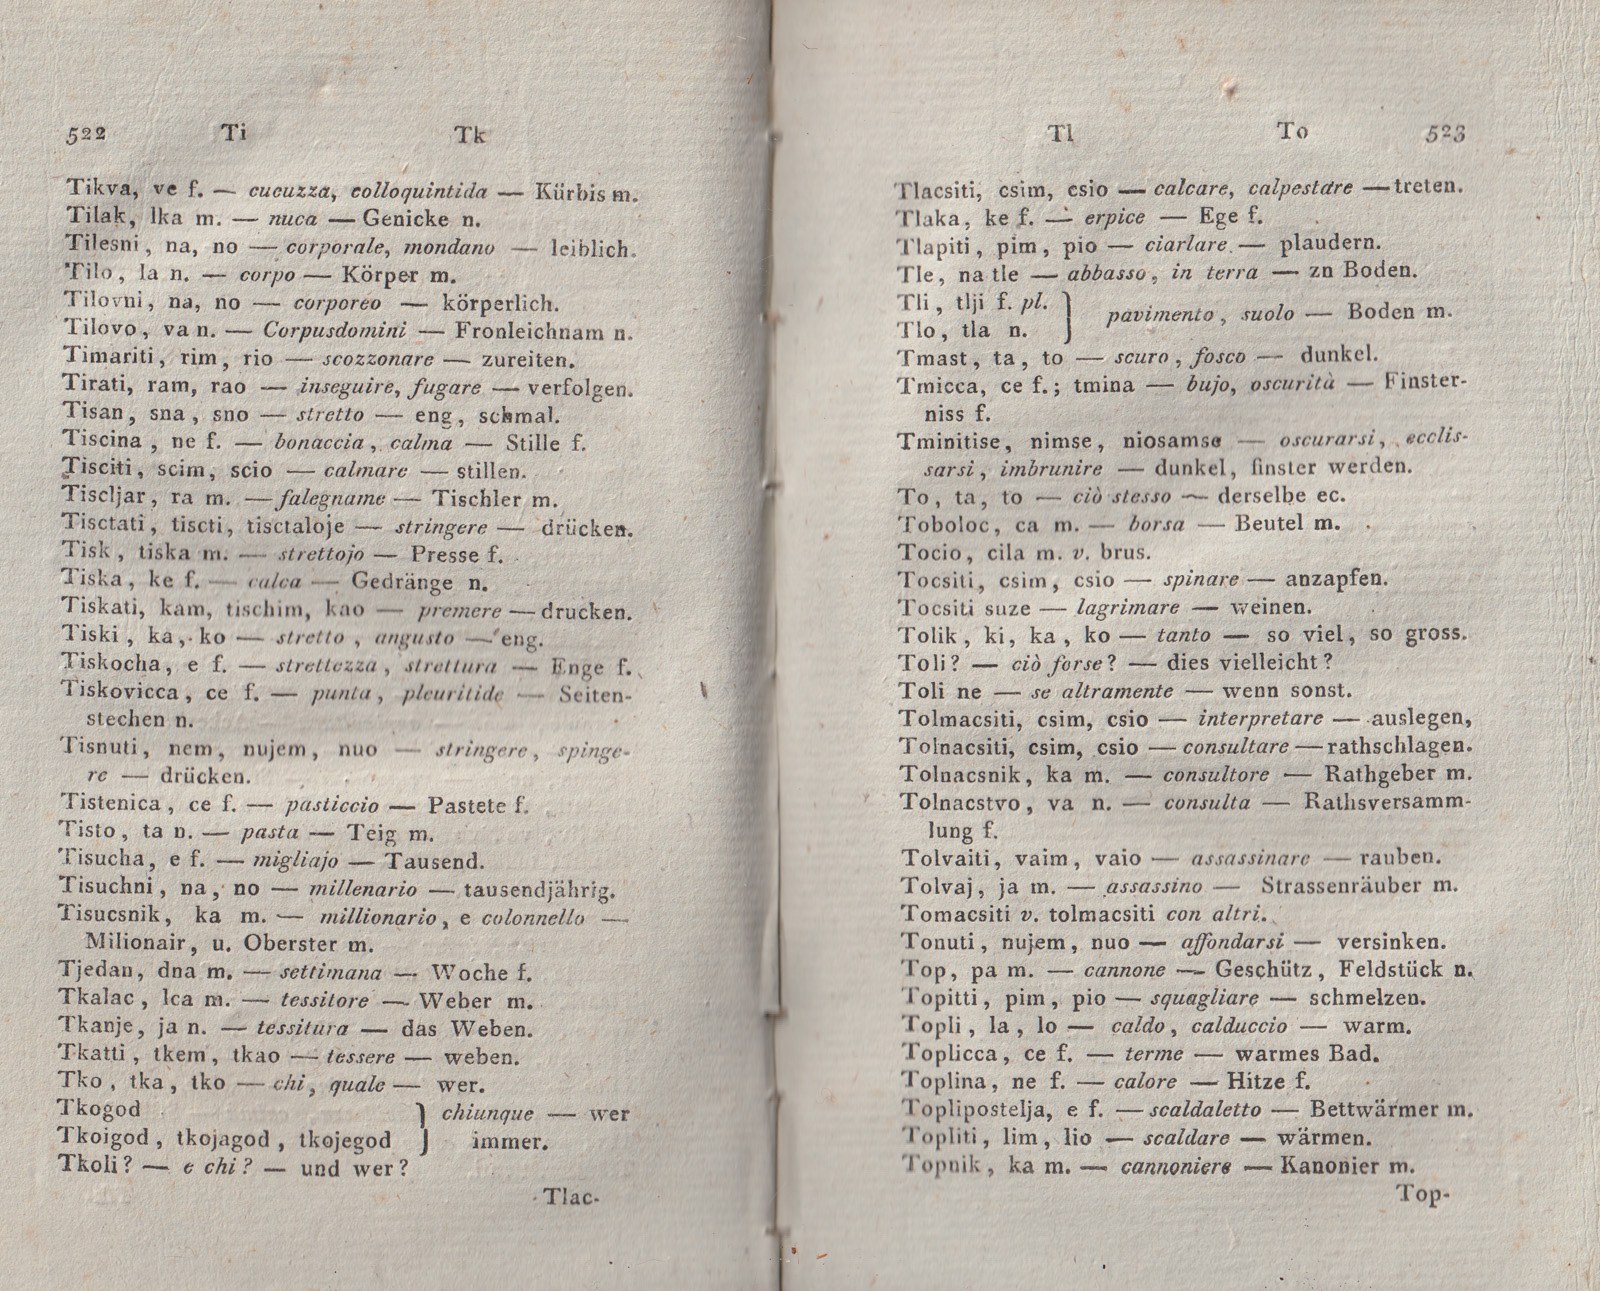 522 Ti Tk
Tikva, ve f. — cucuzza, colloquintida — Kürbis m.
Tilak, lka m. — nuca — Genicke n.
Tilesni, na, no — corporale, mondano — leiblich.
Tilo, la n. — corpo — Körper m.
Tilovni, na, no — corporeo — körperlich.
Tilovo, va n. — Corpusdomini — Fronleichnam n.
Timariti, rim, rio — scozzonare — zureiten.
Tirati, ram, rao — inseguire, fugare — verfolgen.
Tisan, sna, sno — stretto — eng, schmal.
Tiscina, ne f. — bonaccia, calma — Stille f.
Tisciti, scim, scio — calmare — stillen.
Tiscljar, ra m. — falegname — Tischler m.
Tisctati, tiscti, tisctaloje — stringere — drücken.
Tisk, tiska m. — strettojo — Presse f.
Tiska, ke f. — calca — Gedränge n.
Tiskati, kam, tischim, kao — premere — drucken.
Tiski, ka, ko — stretto, angusto — eng.
Tiskocha, e f. — strettezza, strettura — Enge f.
Tiskovicca, ce f. — punta, pleuritide — Seiten-
stechen n.
Tisnuti, nem, nujem, nuo — stringere, spinge-
re — drücken.
Tistenica, ce f. — pasticcio — Pastete f.
Tisto, ta n. — pasta — Teig m.
Tisucha, e f. — migliajo — Tausend.
Tisuchni, na, no — millenario — tausendjährig.
Tisucsnik, ka m. — millionario, e colonnello —
Milionair, u. Oberster m.
Tjedan, dna m. — settimana — Woche f.
Tkalac, lca m. — tessitore — Weber m.
Tkanje, ja n. — tessitura — das Weben.
Tkatti, tkem, tkao — tessere — weben.
Tko, tka, tko — chi, quale — wer.
Tkogod } chiunque — wer
Tkoigod, tkojagod, tkojegod } immer.
Tkoli? — e chi? — und wer?
Tlac-
Tl To 523
Tlacsiti, csim, csio — calcare, calpestare — treten.
Tlaka, ke f. — erpice — Ege f.
Tlapiti, pim, pio — ciarlare — plaudern.
Tle, na tle — abbasso, in terra — zn Boden.
Tli, tlji f. pl. } pavimento, suolo — Boden m.
Tlo, tla n.
Tmast, ta, to — scuro, fosco — dunkel.
Tmicca, ce f.; tmina — bujo, oscurità — Finster-
niss f.
Tminitise, nimse, niosamse — oscurarsi, ecclis-
sarsi, imbrunire — dunkel, finster werden.
To, ta, to — ciò stesso — derselbe ec.
Toboloc, ca m. — borsa — Beutel m.
Tocio, cila m. v. brus.
Tocsiti, csim, csio — spinare — anzapfen.
Tocsiti suze — lagrimare — weinen.
Tolik, ki, ka, ko — tanto — so viel, so gross.
Toli? — ciò forse? — dies vielleicht?
Toli ne — se altramente — wenn sonst.
Tolmacsiti, csim, csio — interpretare — auslegen,
Tolnacsiti, csim, csio — consultare — rathschlagen.
Tolnacsnik, ka m. — consultore — Rathgeber m.
Tolnacstvo, va n. — consulta — Rathsversamm-
lung f.
Tolvaiti, vaim, vaio — assassinare — rauben.
Tolvaj, ja m. — assassino — Strassenräuber m.
Tomacsiti v. tolmacsiti con altri.
Tonuti, nujem, nuo — affondarsi — versinken.
Top, pa m. — cannone — Geschütz, Feldstück n.
Topitti, pim, pio — squagliare — schmelzen.
Topli, la, lo — caldo, calduccio — warm.
Toplicca, ce f. — terme — warmes Bad.
Toplina, ne f. — calore — Hitze f.
Toplipostelja, e f. — scaldaletto — Bettwärmer m.
Topliti, lim, lio — scaldare — wärmen.
Topnik, ka m. — cannoniere — Kanonier m.
Top-